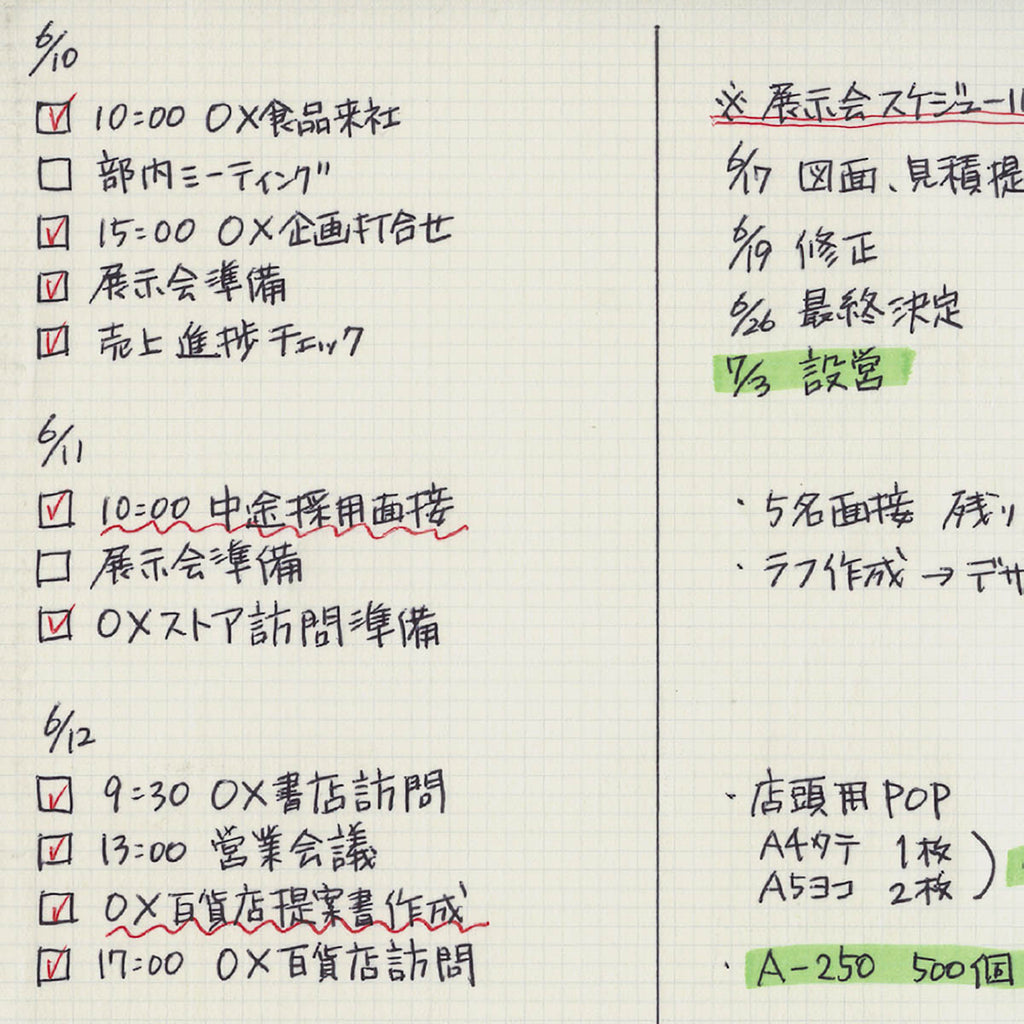 6/10
☑ 10:00 OX食品来社
☐ 部内ミーティング
☑ 15:00 OX企画打合せ
☑ 展示会準備
☑ 売上進捗チェック
6/11
☑ 10:00 中途採用面接
☐ 展示会準備
☑ OXストア訪問準備
6/12
☑ 9:30 OX書店訪問
☑ 13:00 営業会議
☑ OX百貨店提案書作成
☑ 17:00 OX百貨店訪問
※ 展示会スケジュール
6/17 図面、見積提
6/19 修正
6/26 最終決定
7/3 設営
・5名面接 残り
・ラフ作成→デザ
・店頭用POP
A4タテ 1枚
A5ヨコ 2枚)
・A-250 500個